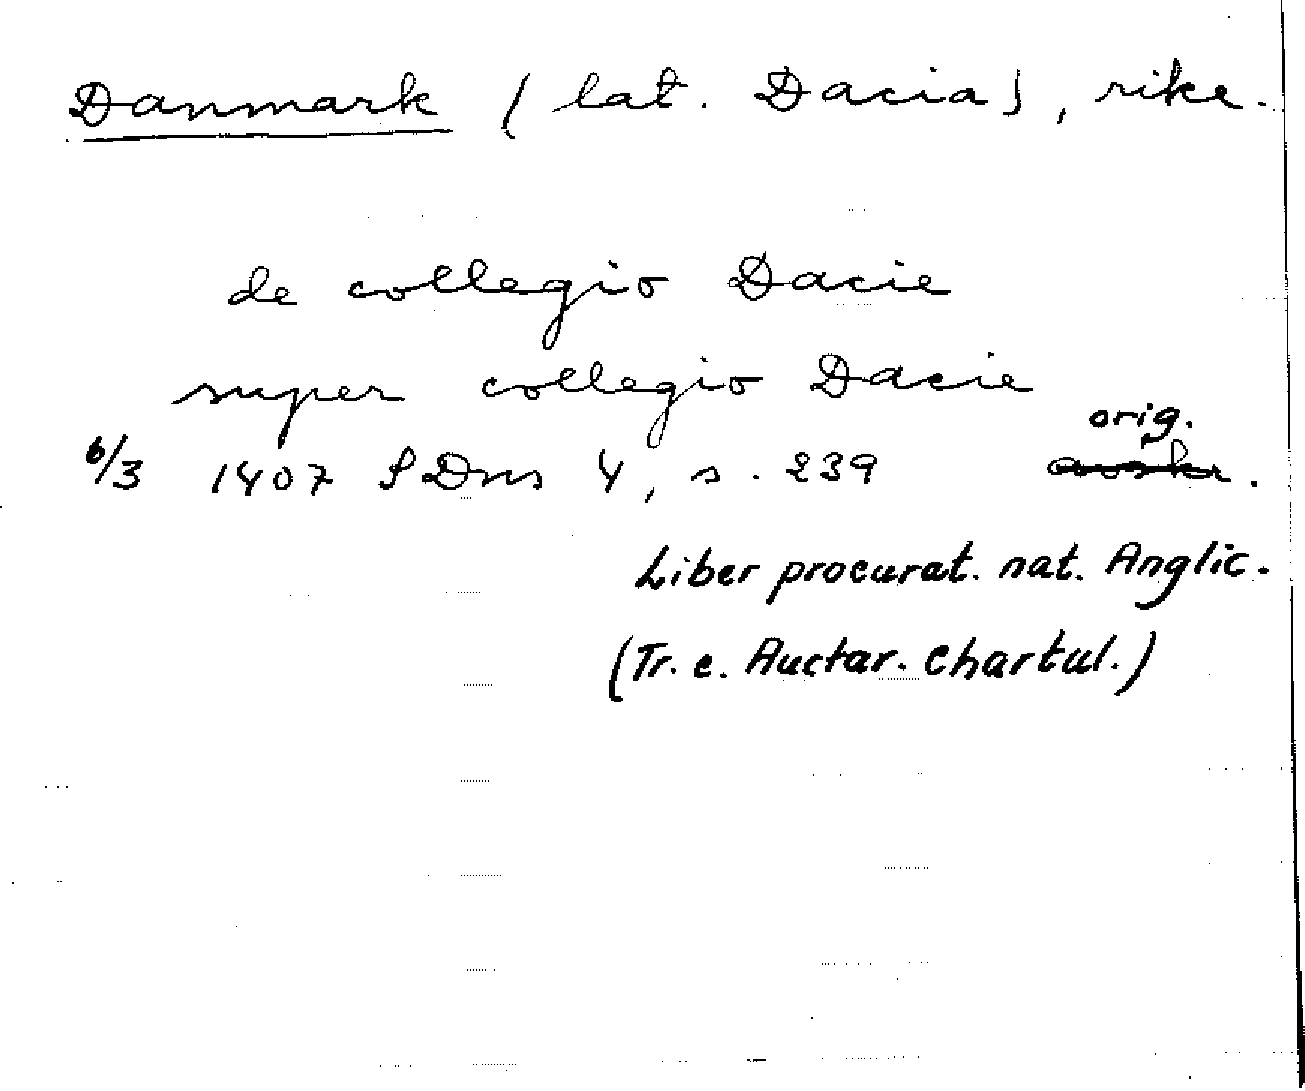 Danmark (lat. Dacia), rike.
de collegio Dacie
super collegio Dacie
orig.
6/3 1407 SDns 4, s. 239 avskr.
Liber procurat. nat. Anglic.
(Tr. e. Auctar. Chartul.)